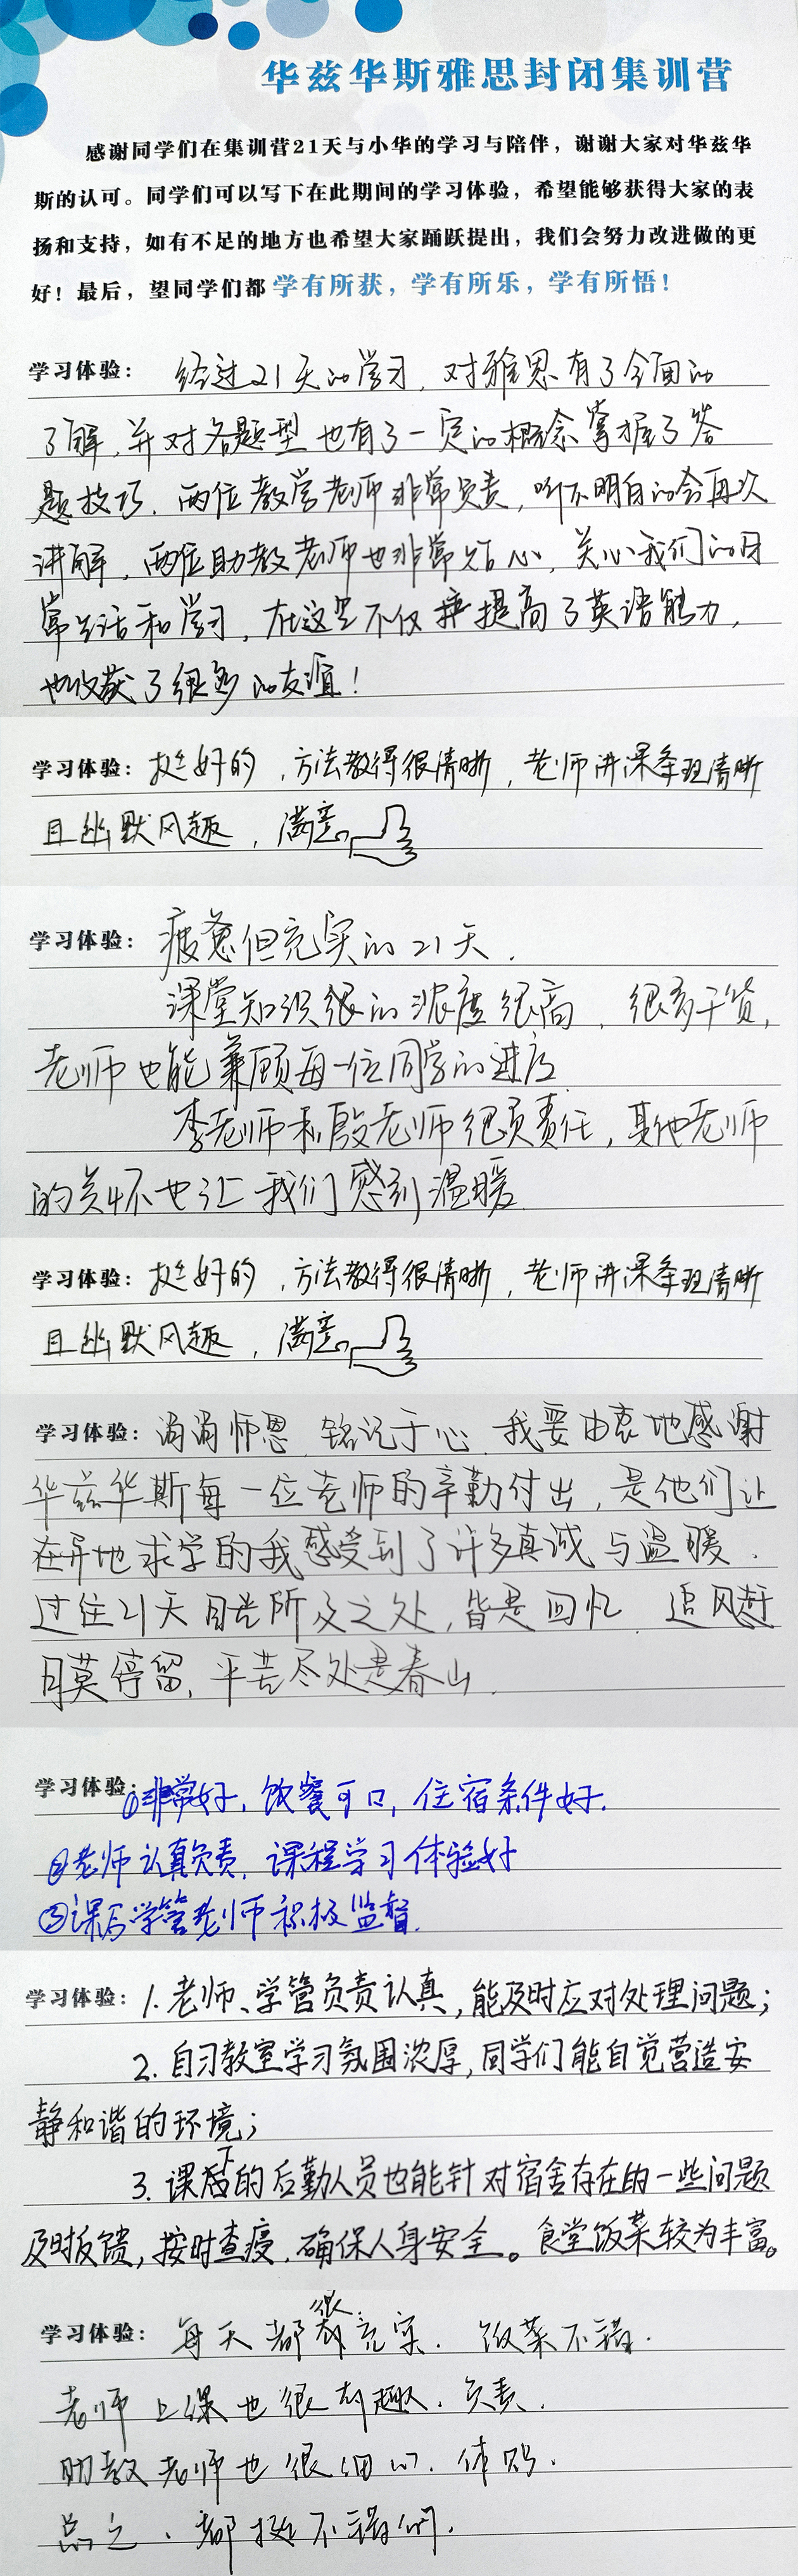 华兹华斯雅思封闭集训营
感谢同学们在集训营21天与小华的学习与陪伴，谢谢大家对华兹华
斯的认可。同学们可以写下在此期间的学习体验，希望能够获得大家的表
扬和支持，如有不足的地方也希望大家踊跃提出，我们会努力改进做的更
好！最后，望同学们都 学有所获，学有所乐，学有所悟！
学习体验： 经过21天的学习，对雅思有了全面的
了解，并对各题型也有了一定的概念掌握了答
题技巧．两位教学老师非常负责，听不明白的会再次
讲解，两位助教老师也非常贴心，关心我们的日
常生活和学习，在这里不仅 提高了英语能力，
也收获了很多的友谊！
学习体验：挺好的，方法教得很清晰，老师讲课条理清晰
且幽默风趣，满意
学习体验： 疲惫但充实的21天．
课堂知识很的浓度很高，很多干货，
老师也能兼顾每一位同学的进度
李老师和殷老师很负责任，其他老师
的关怀也让我们感到温暖．
学习体验：挺好的，方法教得很清晰，老师讲课条理清晰
且幽默风趣，满意
学习体验：涓涓师恩 铭记于心．我要由衷地感谢
华兹华斯每一位老师的辛勤付出，是他们让
在异地求学的我感受到了许多真诚与温暖．
过往21天目光所及之处，皆是回忆．追风赶
月莫停留，平芜尽处是春山．
学习体验：①非常好，饮餐可口，住宿条件好．
②老师认真负责，课程学习体验好
③课后学管老师积极监督．
学习体验：1. 老师、学管负责认真，能及时应对处理问题；
2. 自习教室学习氛围浓厚，同学们能自觉营造安
静和谐的环境；
3. 课下的后勤人员也能针对宿舍存在的一些问题
及时反馈，按时查寝，确保人身安全。食堂饭菜较为丰富。
学习体验： 每天都很充实．饭菜不错．
老师上课也很有趣．负责．
助教老师也很细心．体贴．
总之．都挺不错的．